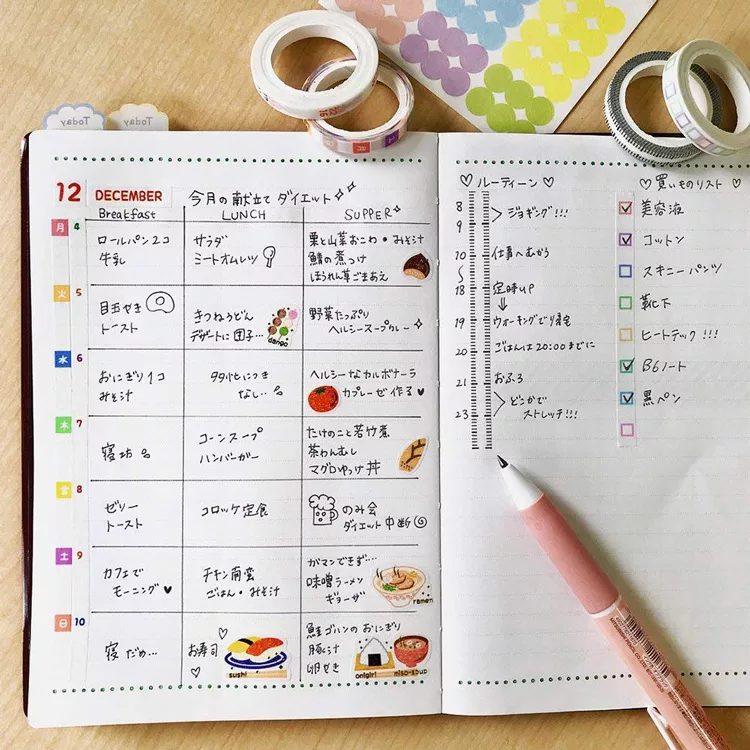 Today
Today
12 DECEMBER 今月の献立て ダイエット
Breakfast LUNCH SUPPER
月 4
ロールパン2コ
牛乳
サラダ
ミートオムレツ
栗と山菜おこわ・みそ汁
鯖の煮つけ
ほうれん草ごまあえ
火 5
目玉やき
トースト
きつねうどん
デザートに団子…
dango
野菜たっぷり
ヘルシースープカレー
水 6
おにぎり1コ
みそ汁
多忙につき
なし…
ヘルシーなカルボナーラ
カプレーゼ作る
木 7
寝坊
コーンスープ
ハンバーガー
たけのこと若竹煮
茶わんむし
マグロゆっけ丼
金 8
ゼリー
トースト
コロッケ定食
のみ会
ダイエット中断
土 9
カフェで
モーニング♥
チキン南蛮
ごはん・みそ汁
ガマンできず…
味噌ラーメン
ギョーザ
ramen
日 10
寝だめ…
お寿司
sushi
鮭ゴハンのおにぎり
豚汁
卵やき
onigiri miso-soup
♡ルーティーン♡
8
9
ジョギング!!!
10 仕事へむかう
18 定時up
19 ウォーキングで帰宅
20 ごはんは20:00までに
21 おふろ
23
どこかで
ストレッチ!!!
♡買いものリスト♡
美容液
コットン
スキニーパンツ
靴下
ヒートテック!!!
B6ノート
黒ペン